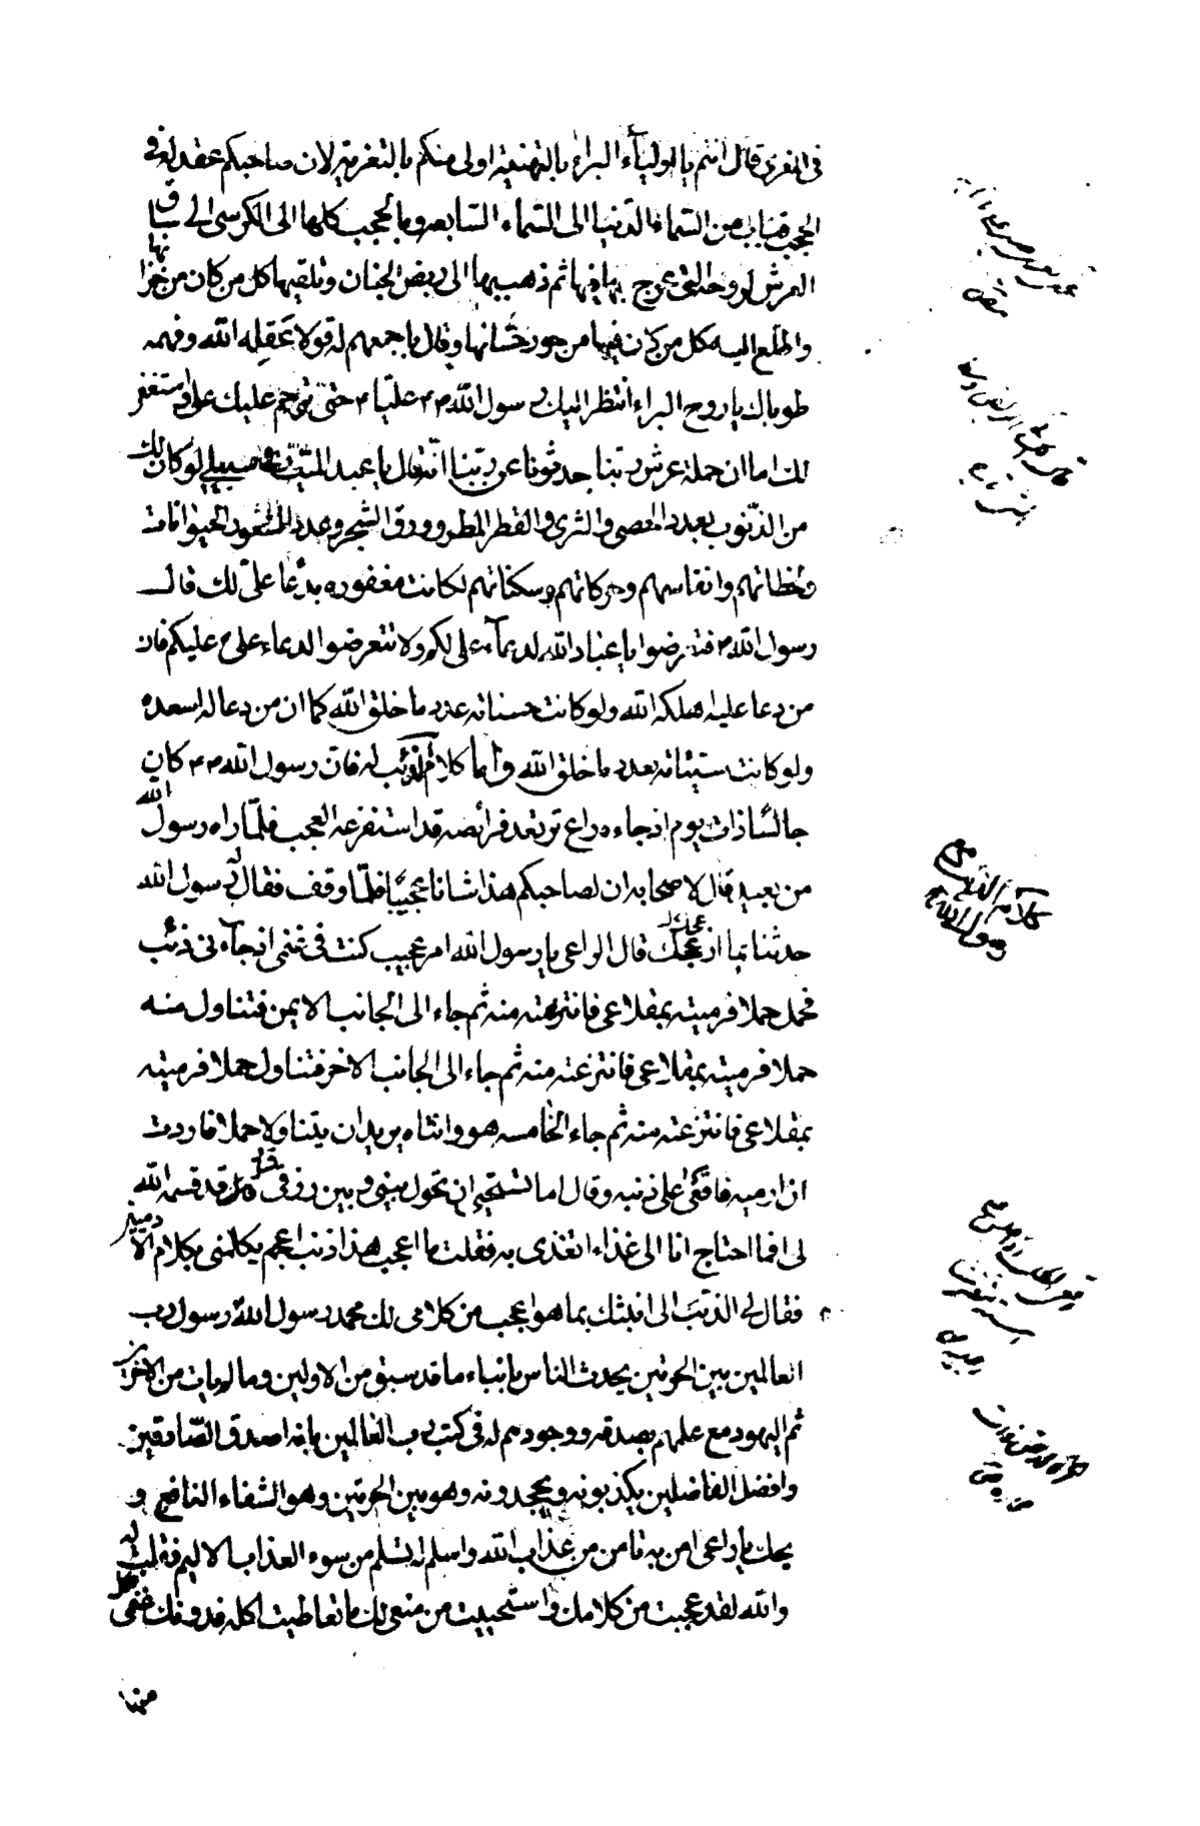 في التعزي قال انتم يا اولياء البراء بالتهنية اولى منكم بالتعزية لان صاحبكم عقد له في
الحجب قباب من السماء الدنيا الى السماء السابعة وبالحجب كلها الى الكرسي الى ساق
العرش لروحه التي عرج بها فيها ثم ذهب بها الى ربض الجنان وتلقيها كل من كان من خزانها
واطلع اليه كل من كان فيها من حور حسانها وقال باجمعهم له قولا عقله الله وفهمه
طوباك يا روح البراء انتظر اليك رسول الله ص عليا ع حتى ترحم عليك على واستغفر
لك اما ان حملة عرش ربنا حدثونا عن ربنا انه قال يا عبد الميت في سبيلي لو كان لك
من الذنوب بعدد الحصى والثرى والقطر المطر وورق الشجر وعدد شعور الحيوانات
ولحظاتهم وانفاسهم وحركاتهم وسكناتهم لكانت مغفوره بدعا على لك قال
رسول الله ص فتعرضوا يا عباد الله لدعاء على لكم ولا تتعرضوا لدعاء على ع عليكم فان
من دعا عليه اهلكه الله ولو كانت حسناته عدد ما خلق الله كما ان من دعا له اسعده
ولو كانت سيئاته بعدد ما خلق الله واما كلام الذئب له فان رسول الله ص كان
جالسا ذات يوم اذ جاءه راع ترتعد فرائصه قد استفزعه العجب فلما راه رسول الله
من بعيد قال لاصحابه ان لصاحبكم هذا شانا عجيبا فلما وقف فقال له رسول الله
حدثنا بما ازعجك قال الراعي يا رسول الله امر عجيب كنت في غنمي اذ جاءني ذئب
فحمل حملا فرميته بمقلاعي فانتزعته منه ثم جاء الى الجانب الايمن فتناول منه
حملا فرميته بمقلاعي فانتزعته منه ثم جاء الى الجانب الاخر فتناول حملا فرميته
بمقلاعي فانتزعته منه ثم جاء الخامسه هو وانثاه يريدان يتناولا حملا فاردت
ان ارميه فاقعى على ذنبه وقال اما تستحيي ان تحول بيني وبين رزق قد قسمه الله
لي افما احتاج انا الى غذاء اتغذى به فقلت ما اعجب هذا ذئب اعجم يكلمني بكلام الآدميين
فقال لي الذئب الى انبئك بما هو اعجب من كلامي لك محمد رسول الله رسول رب
العالمين بين الحرتين يحدث الناس بانباء ما قد سبق من الاولين وما لم يات من الاخرين
ثم اليهود مع علمهم بصدقه ووجودهم له في كتب رب العالمين بانه اصدق الصادقين
وافضل الفاضلين يكذبونه ويجحدونه وهو بين الحرتين وهو الشفاء النافع و
يحك يا راعي امن به تامن من عذاب الله واسلم له تسلم من سوء العذاب الاليم فقلت له
والله لقد عجبت من كلامك واستحييت من منعي لك ما تعاطيت اكله فدونك غنمي فكل
منها
كلام الذئب مع
رسول الله ص